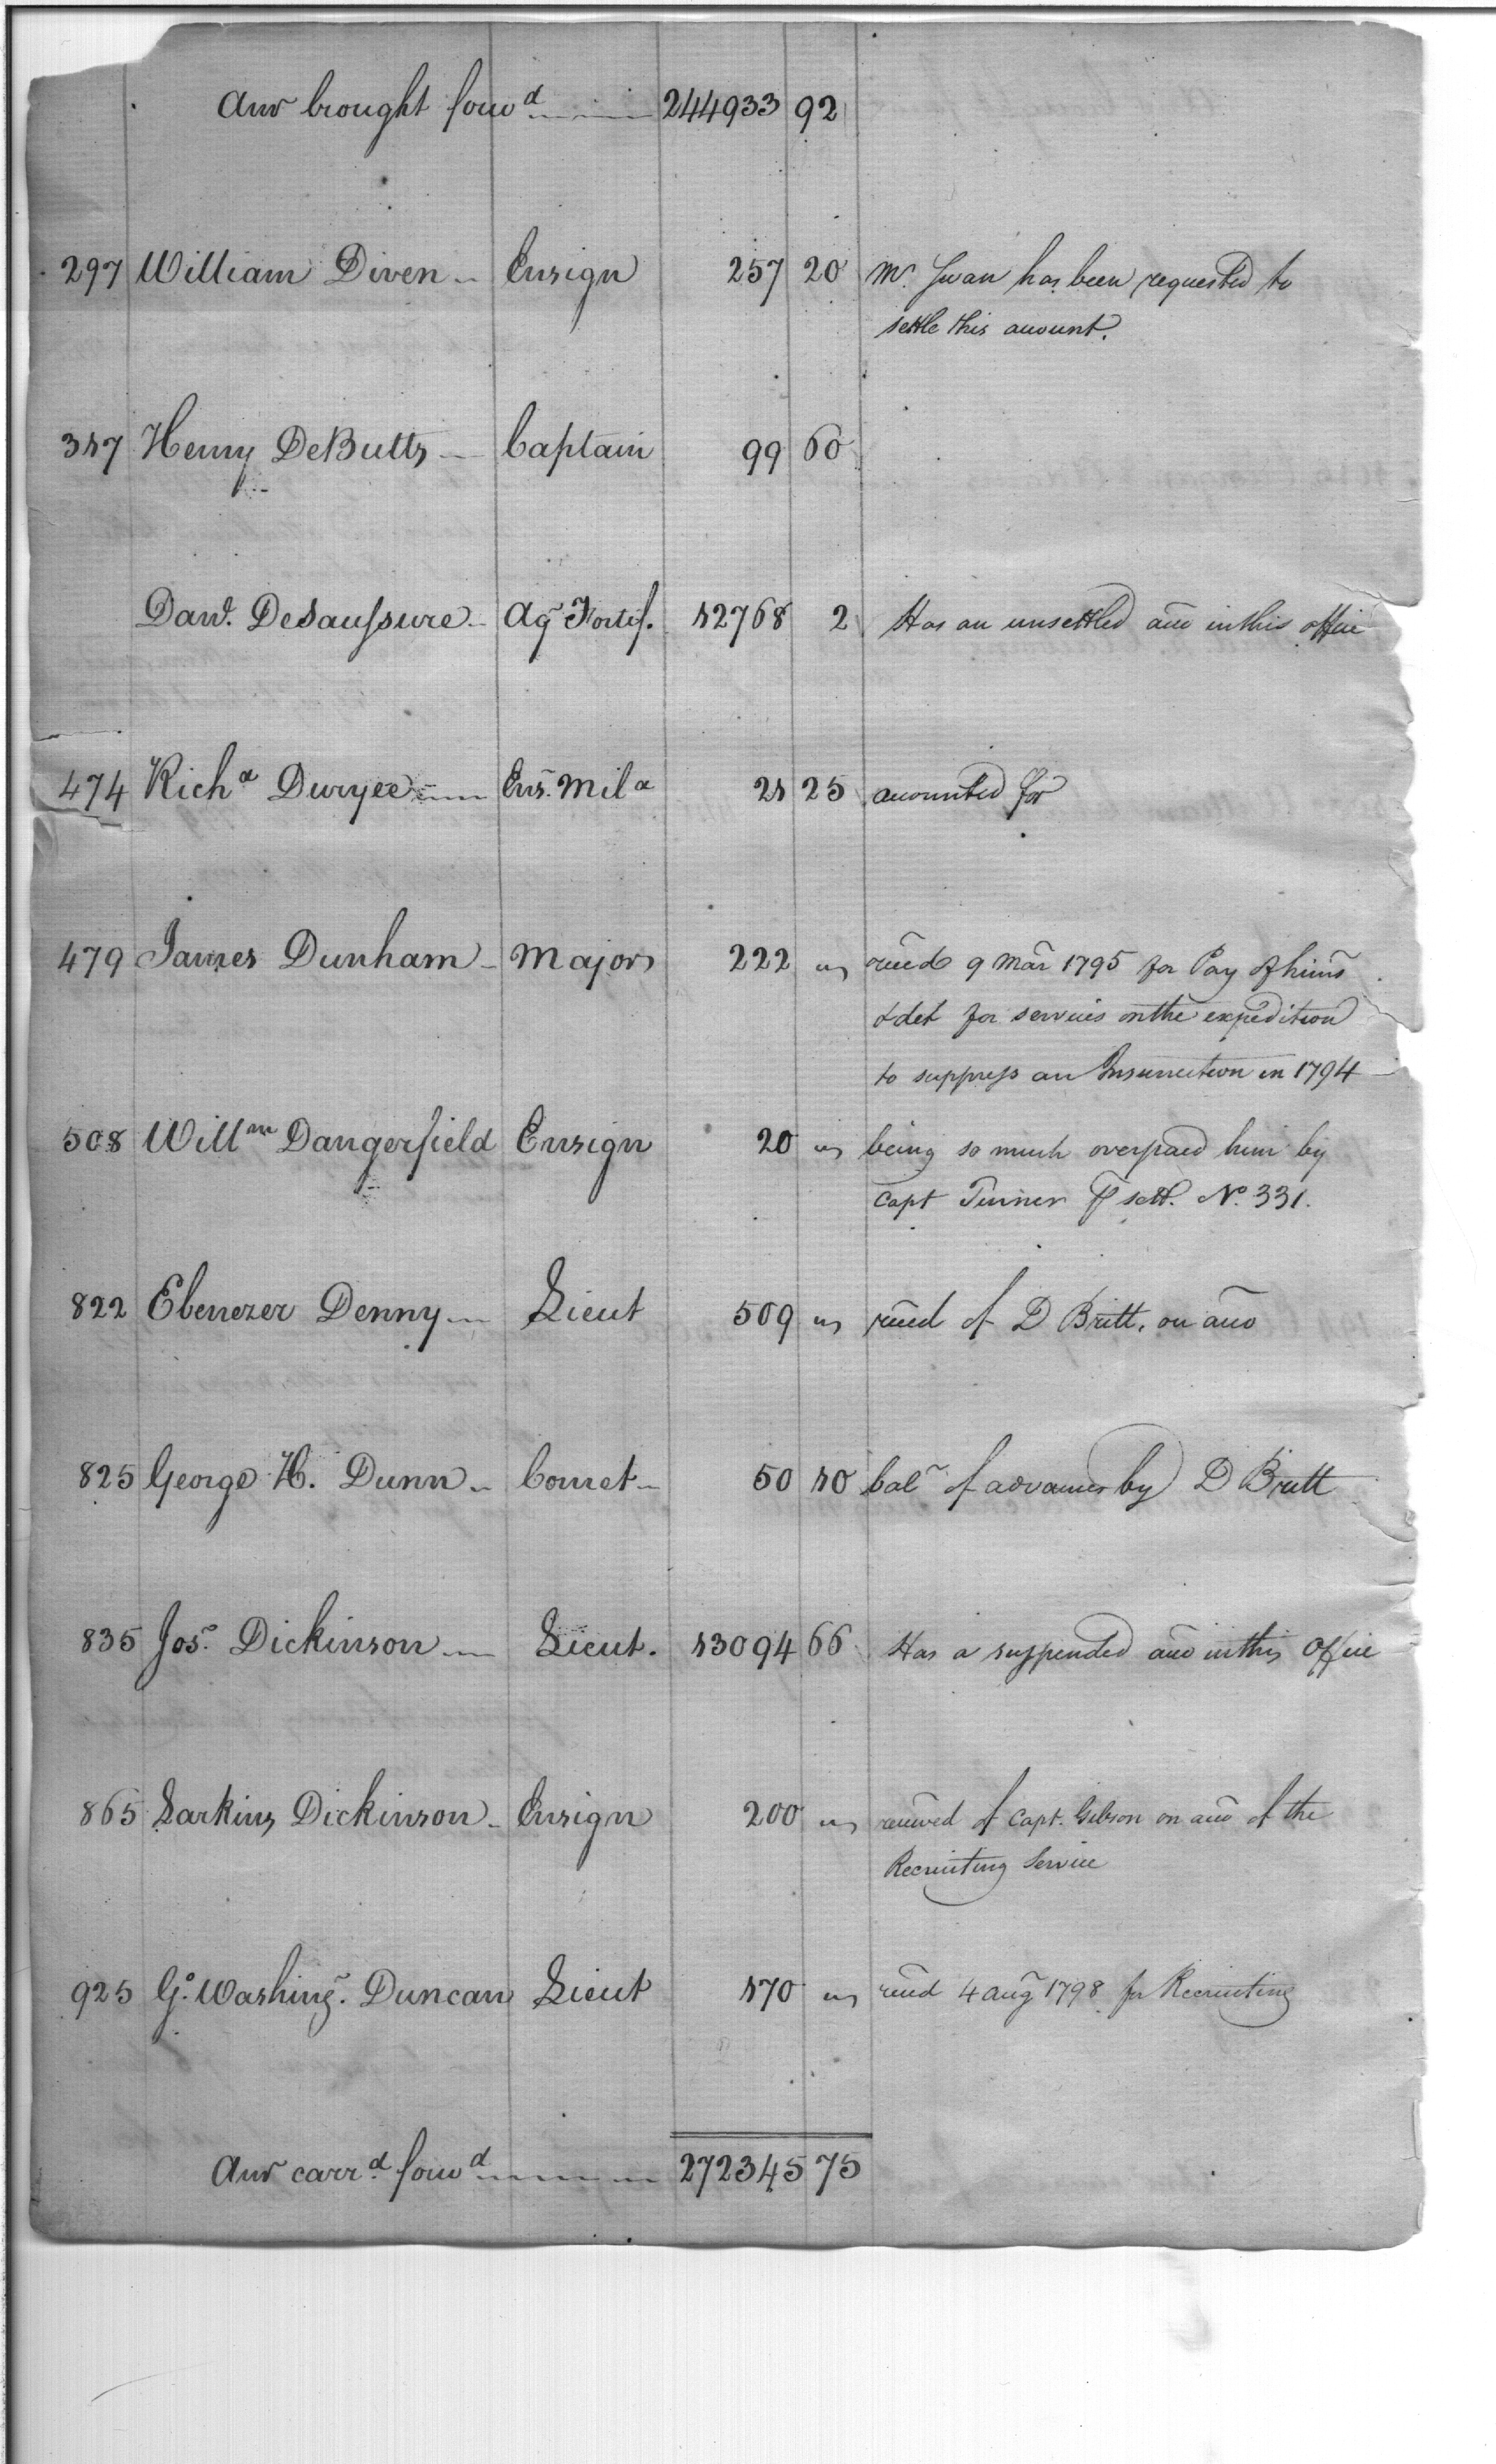 Amt brought forwd 244933 92
297 William Diven Ensign 257 20 Mr. Swan has been requested to
settle this account.
317 Henry DeButts Captain 99 60
Danl. DeSaussure Agt Fortif. 12768 2 Has an unsettled acco in this office
474 Richd Duryee Ens. Mila 21 25 accounted for
479 James Dunham Major 222 " recd 9 Mar 1795 for Pay of hims
& det for services on the expedition
to suppress an Insurrection in 1794
508 Willm Dangerfield Ensign 20 " being so much overpaid him by
Capt Turner ⅌ sett. No. 331.
822 Ebenezer Denny Lieut 509 " recd of D Britt. on acco
825 George H. Dunn Cornet 50 10 bal of advances by D Britt
835 Jos. Dickinson Lieut. 13094 66 Has a suspended acco in this Office
865 Larkins Dickinson Ensign 200 " received of Capt. Gibson on acco of the
Recruiting Service
925 Go. Washing. Duncan Lieut 170 " recd 4 Aug 1798 for Recruiting
Amt carrd forwd 272345 75